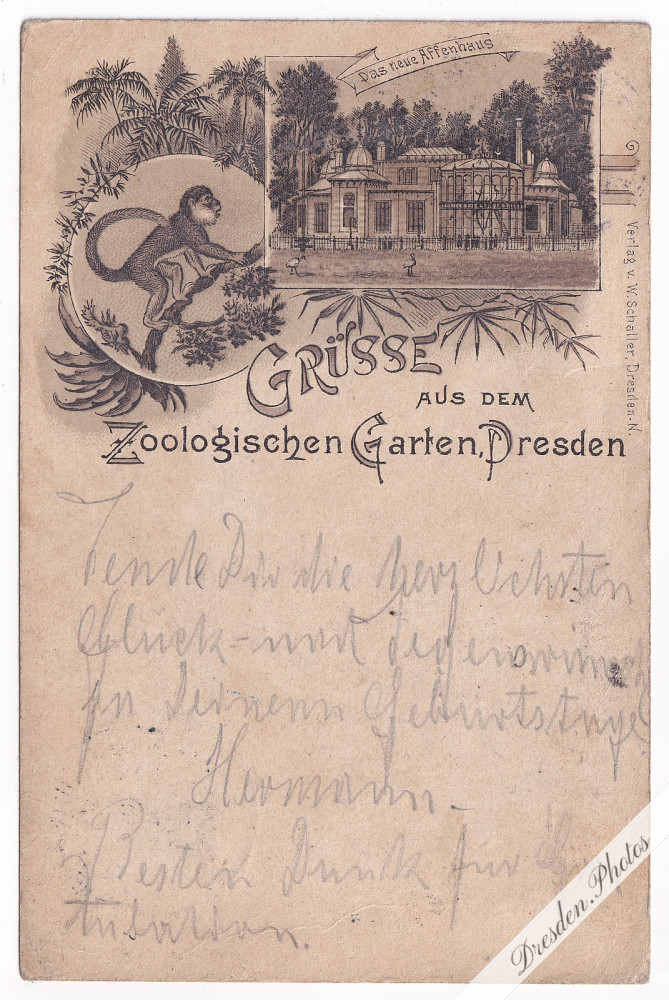 Das neue Affenhaus
GRÜSSE
AUS DEM
Zoologischen Garten, Dresden
Verlag v. W. Schaller, Dresden-N.
Sende Dir die herzlichsten
Glück- und Segenswünsch
zu Deinem Geburtstage
Hermann.
Besten Dank für Gra
tulation.
Dresden.Photos